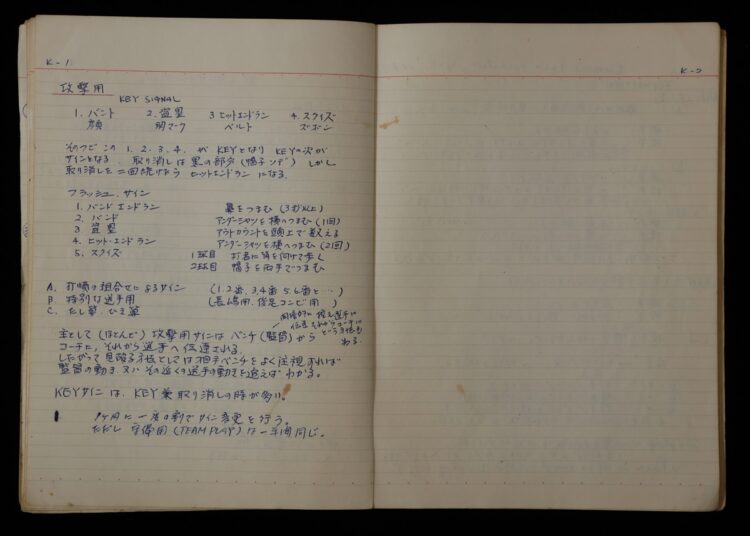 K-1
攻撃用
KEY SIGNAL
1. バント 2. 盗塁 3 ヒットエンドラン 4. スクイズ
顔 胸マーク ベルト ズボン
そのつど この 1. 2. 3. 4. が KEYとなり KEYの次が
サインとなる. 取り消しは黒の部分(帽子 ソデ) しかし
取り消しを二回続けたら ヒットエンドラン になる.
フラッシュ. サイン
1. バンドエンドラン 鼻をつまむ (3才以上)
2. バンド アンダーシャツを横へつまむ (1回)
3 盗塁 アウトカウントを頭上で数える
4. ヒット・エンドラン アンダーシャツを横へつまむ (2回)
5. スクイズ 1試目 打者に背を向けて歩く
2試目 帽子を両手でつまむ
A. 打順の組合せによるサイン (1.2番、3.4番 5.6番と…)
B. 特別な選手用 (長嶋用、俊足コンビ用)
C. たし算. ひき算
主として (ほとんど) 攻撃用サインは ベンチ (監督) から
コーチに、それから選手へ伝達される.
したがって見破る手段としては相手ベンチをよく注視すれば
監督の動き 又はその近くの選手の動きを追えば わかる。
KEYサインは、KEY兼取り消しの時が多い。
1ヶ月に一度の割でサイン変更を行う。
ただし 守備用 (TEAM PLAY) は一年間同じ.
K-2